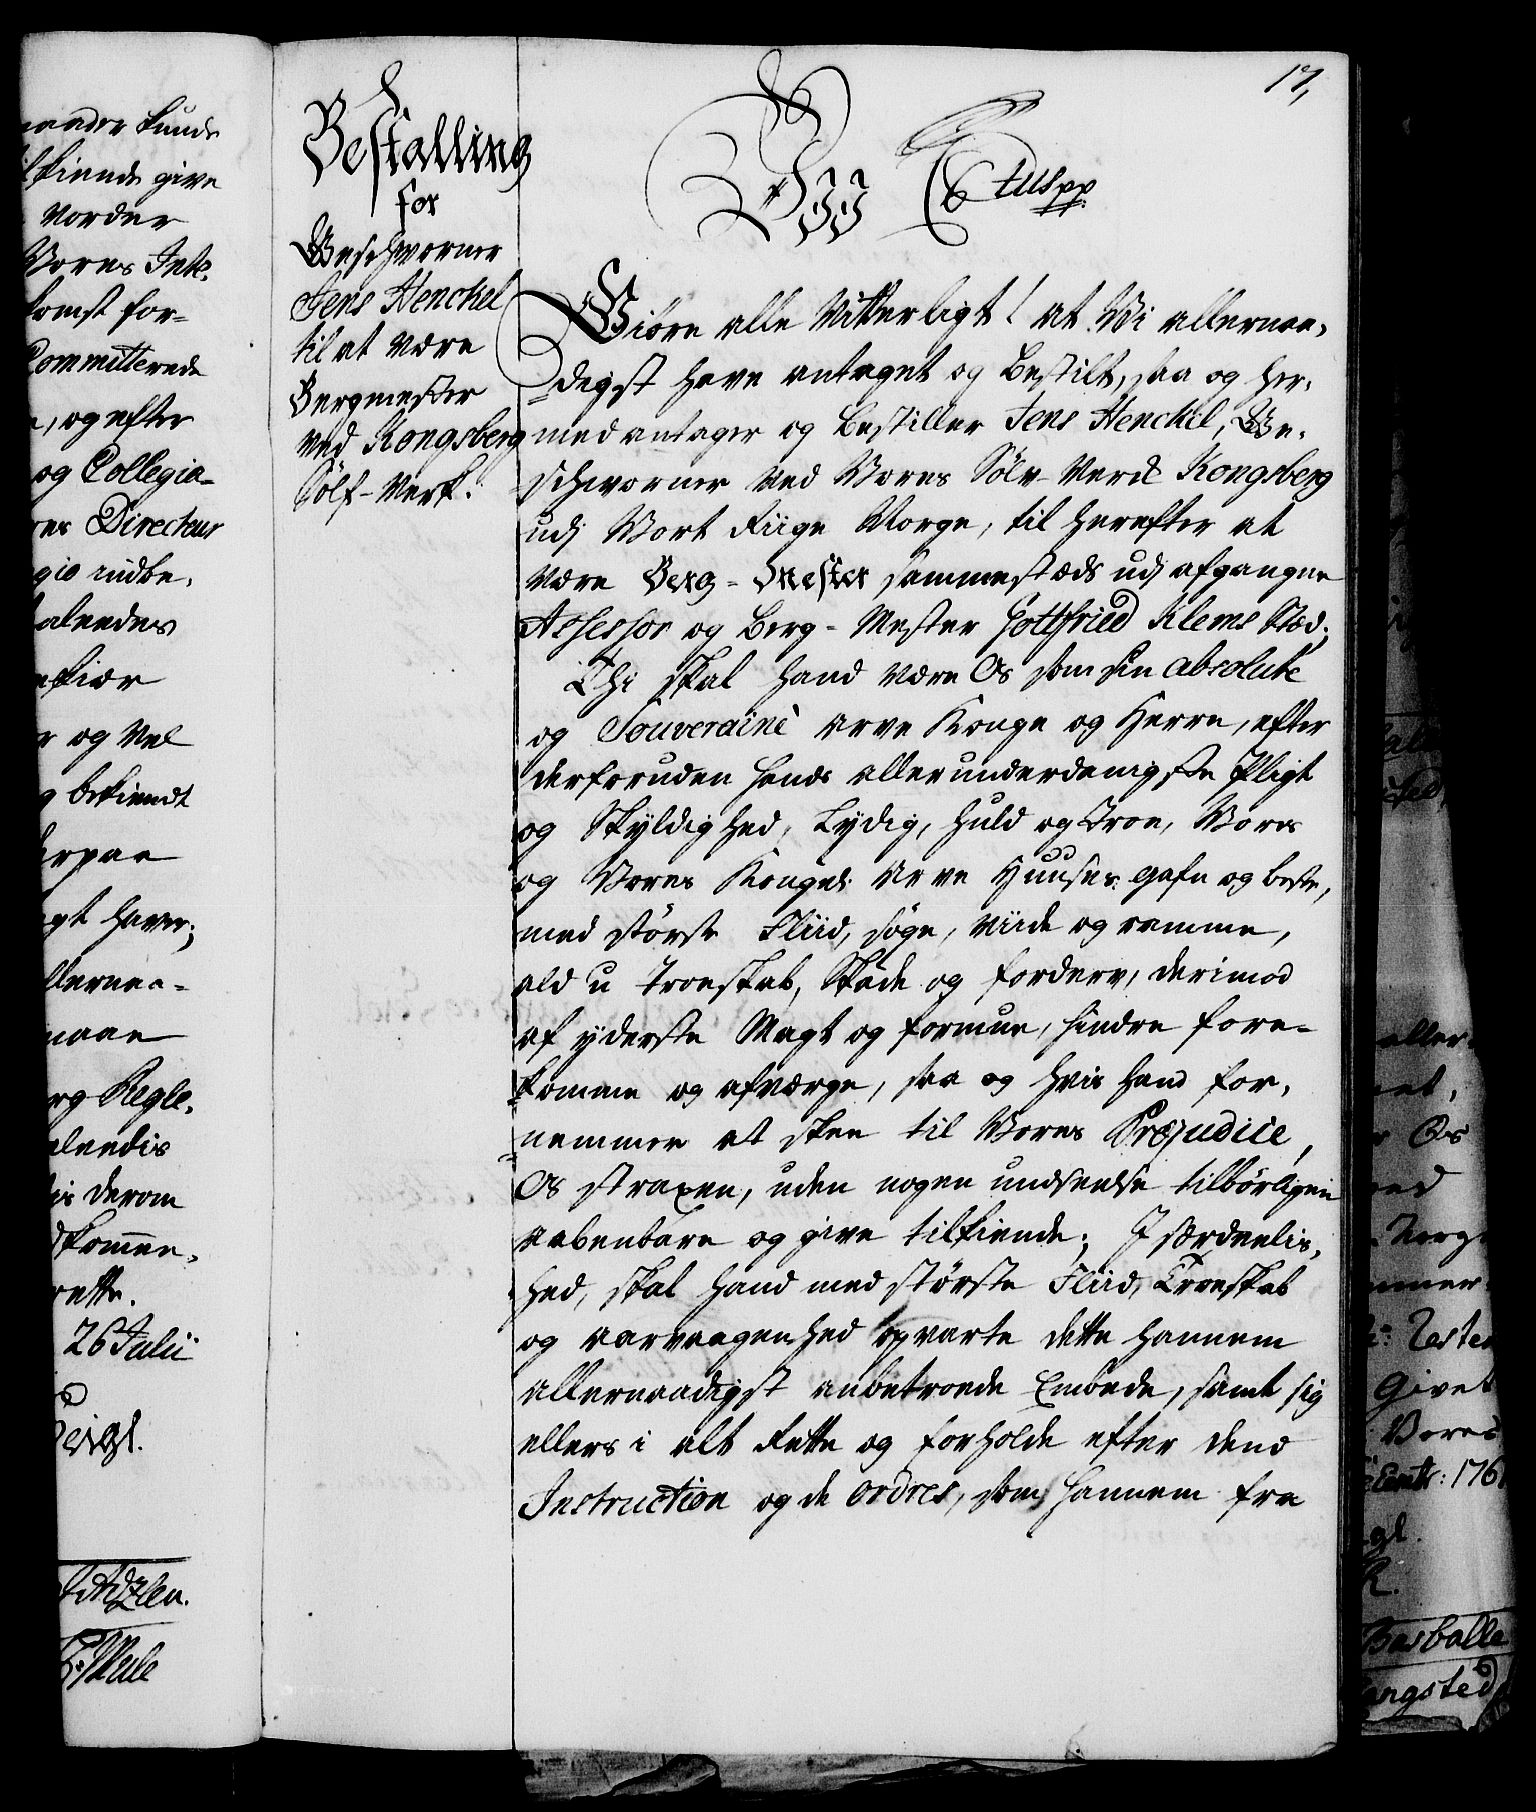 17,
Bestalling
for
Geschworner
Jens Henckel
til at være
Bergmester
ved Kongsberg
Sølf-Verk.
Wii Ctus pp
Giøre alle Vitterligt! at Wi allernaa,
digst have antaget og bestilt, saa og her,
med antager og bestiller Jens Henckel, Ge,
schworner ved Vores Sølv-Verck Kongsberg
udj Vort Riige Norge, til herefter at
være Berg-Mester sammestæds udj afgangne
Assessor og Berg-Mester Gottfried Klems Stæd;
Thi skal hand være Os som sin absolute
og Souveraine Arve Konge og Herre, efter
derforuden hands allerunderdanigste Pligt
og Skyldighed, Lydig, huld og Troe, Vores
og Vores Kongel: Arve Huuses gafn og beste,
med største Fliid, søge, viide og ramme,
ald u Troeskab, Skade og forderv, derimod
af yderste Magt og formue, hindre fore-
komme og afværge, saa og hvis hand for,
nemmer at skee til Vores Præjudice,
Os straxen, uden nogen undseelse tilbørligen
aabenbare og give tilkiende; J særdeelis,
hed, skal hand med største Fliid, Troeskab
og aarvaagenhed opvarte dette hannem
allernaadigst anbetroede Embede, samt sig
ellers i alt Rette og forholde efter dend
Instruction og de ordres, som hannem fra
naader kunde
tilkiende give
vorder
Vores Inte,
komst for-
Committerede
, og efter
og Collegia-
Directeur
og Vel
bekiendt
erpaa
haver;
llernaa-
maae
Regle,
derom
26 Julii
Os
Givet
Vores
176
Basballe
angsted